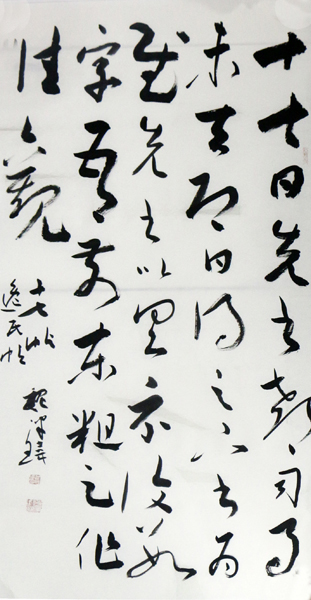 十七日先書郗司馬
未去即日得足下書為
慰先書以具示復數
字吾前東粗足作
佳觀
十七帖
逸民帖